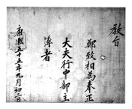 教旨
鄭致相為奉正
大夫行中部主
簿者
康熙五十五年九月初 日